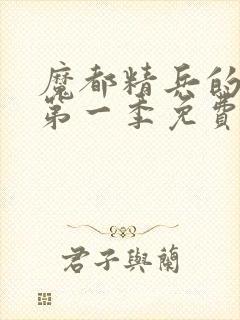 魔都精兵的
第一季免費
君子與蘭